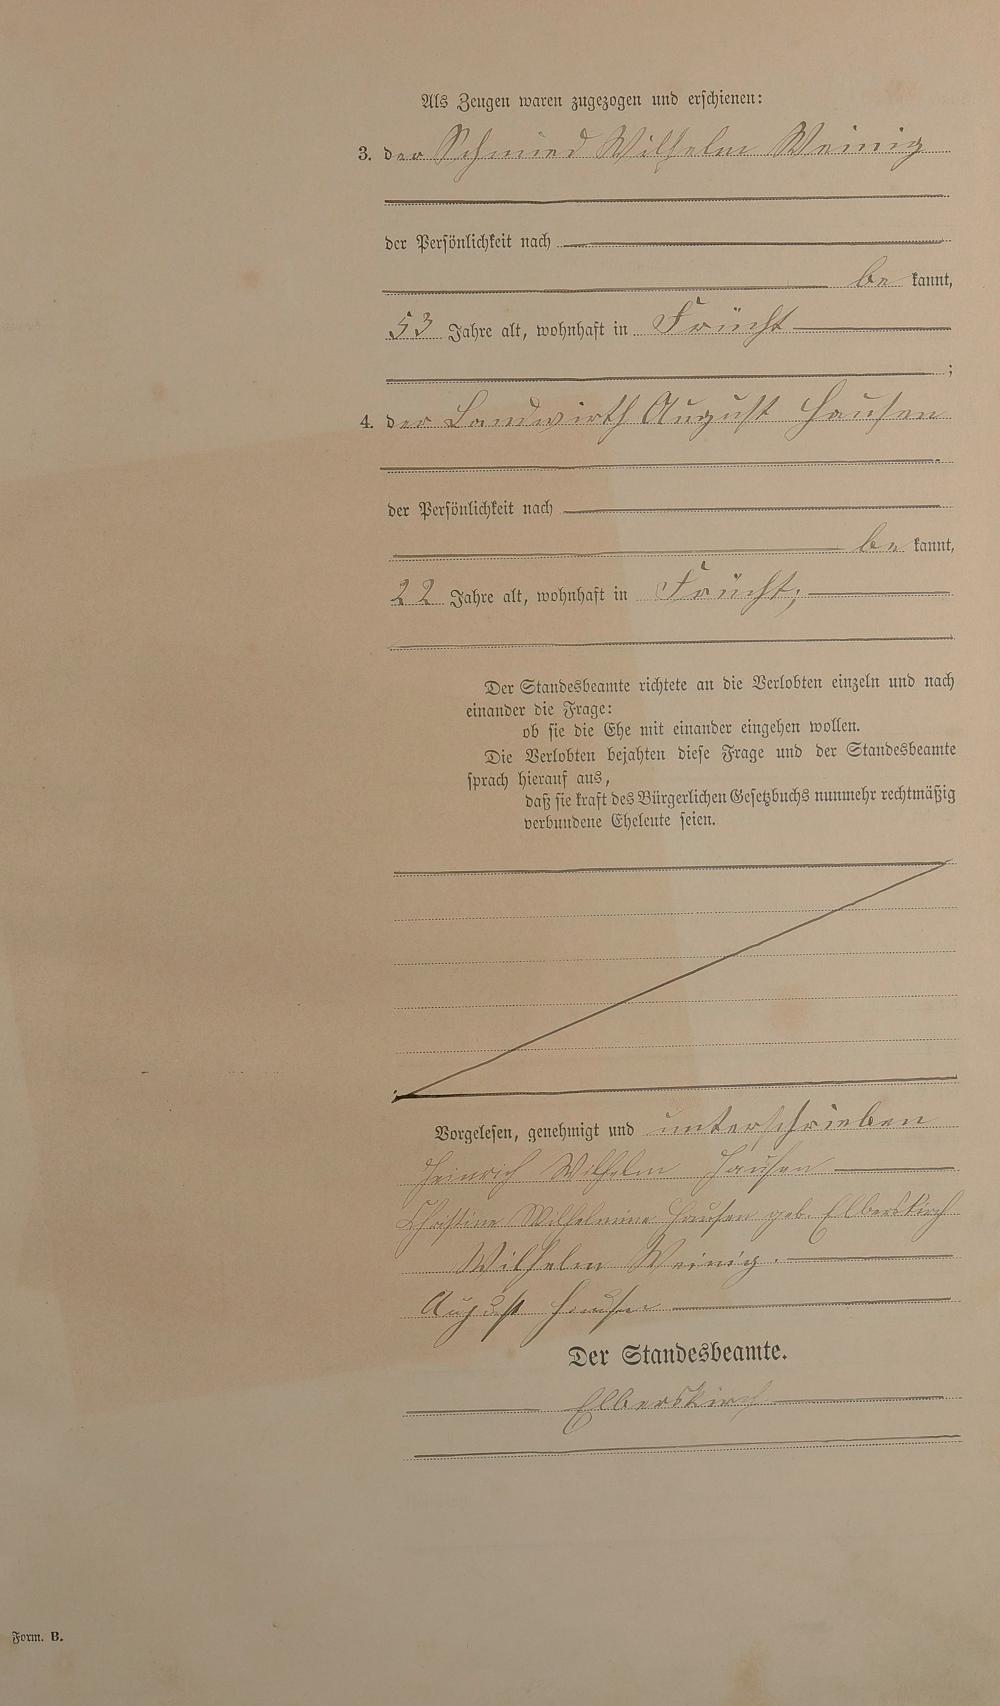 Als Zeugen waren zugezogen und erschienen:
3. der Schmied Wilhelm Weinig
der Persönlichkeit nach
be kannt,
53 Jahre alt, wohnhaft in Frücht
;
4. der Landwirth August Hausen
der Persönlichkeit nach
be kannt,
22 Jahre alt, wohnhaft in Frücht;
Der Standesbeamte richtete an die Verlobten einzeln und nach
einander die Frage:
ob sie die Ehe mit einander eingehen wollen.
Die Verlobten bejahten diese Frage und der Standesbeamte
sprach hierauf aus,
daß sie kraft des Bürgerlichen Gesetzbuchs nunmehr rechtmäßig
verbundene Eheleute seien.
Vorgelesen, genehmigt und unterschrieben
Heinrich Wilhelm Hausen
Christine Wilhelmine Hausen geb. Elberskirch
Wilhelm Weinig.
August Hausen
Der Standesbeamte.
Elberskirch
Form. B.